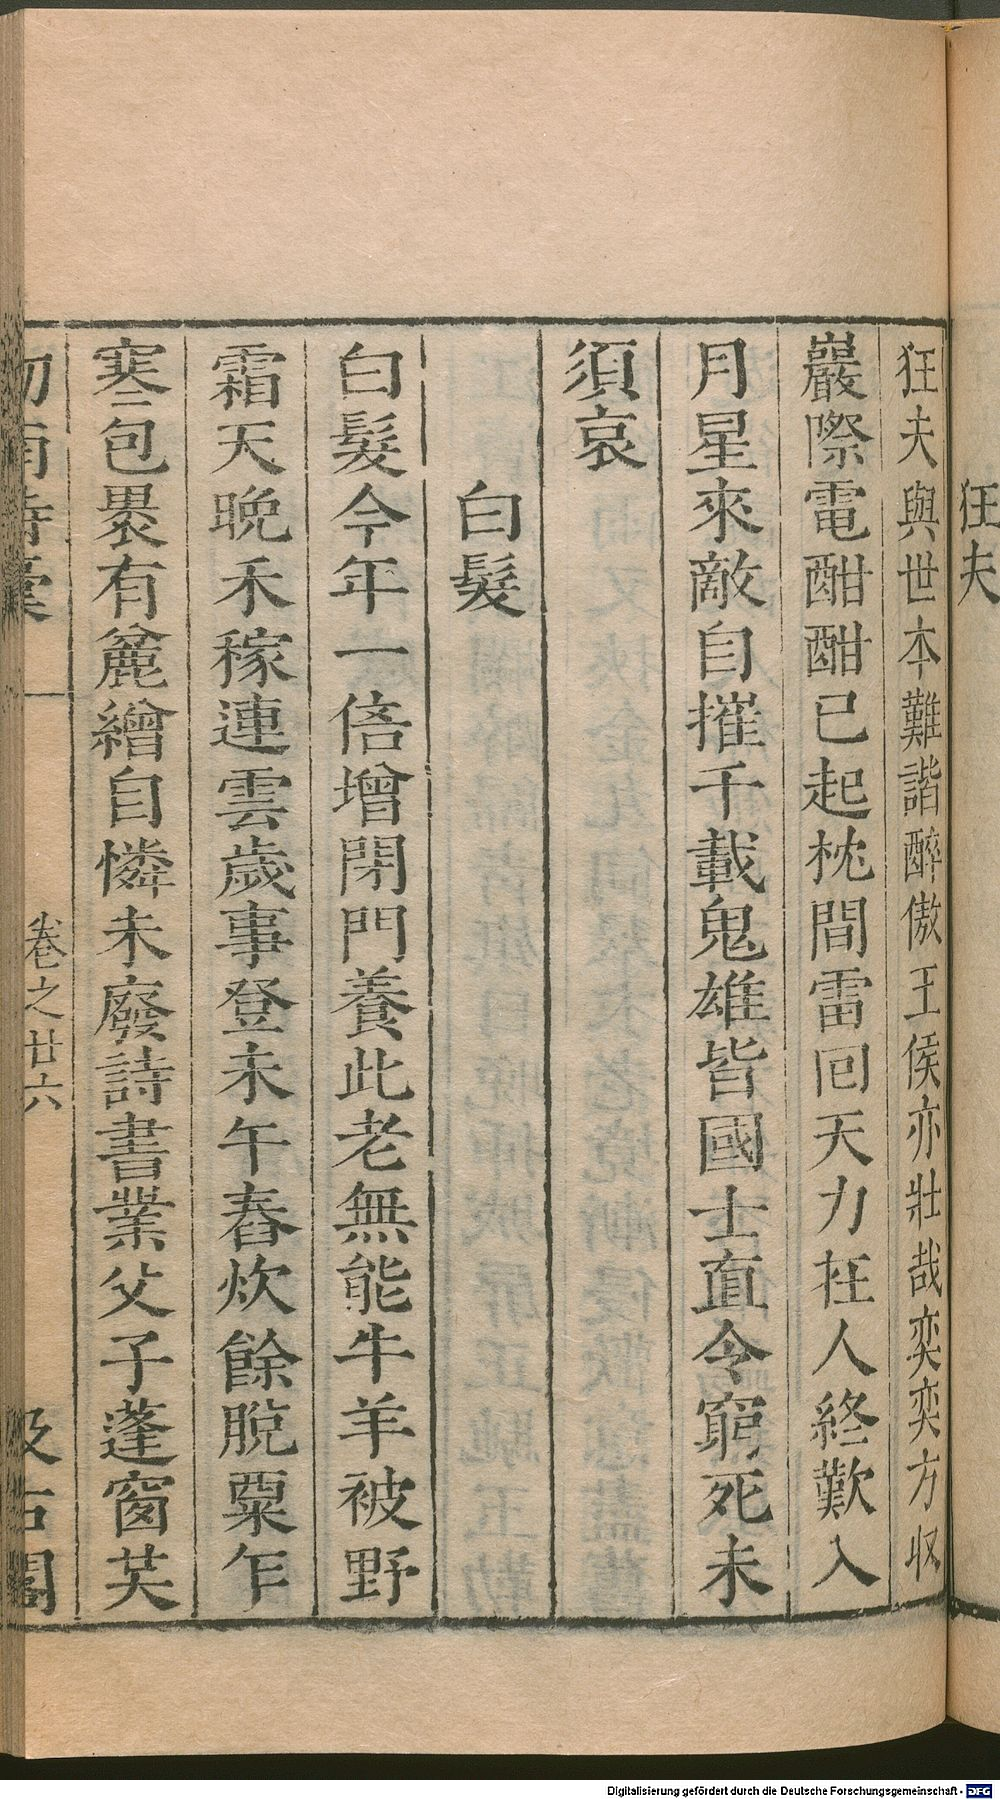 狂夫
狂夫與世本難諧醉傲王侯亦壯哉奕奕方収
巖際電酣酣已起枕間雷回天力在人終歎入
月星來敵自摧千載鬼雄皆國士直令窮死未
須哀
白髮
白髮今年一倍增閉門養此老無能牛羊被野
霜天晚禾稼連雲歲事登未午舂炊餘脫粟乍
寒包褁有麄繒自憐未廢詩書業父子蓬窗共
卷之廿六
Digitalisierung gefördert durch die Deutsche Forschungsgemeinschaft - DFG